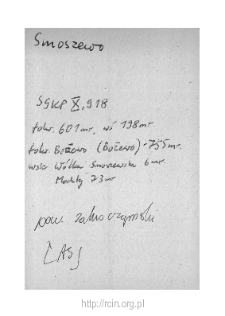 Smoszewo
SGKP X, 918
folw. 601 mr, wś 198 mr
folw. Bożewo (Gożewo) - 755 mr.
wsie Wólka Smoszewska 6 mr.
Modły 73 mr
pow. Zakroczymski
[AS]
http://rcin.org.pl